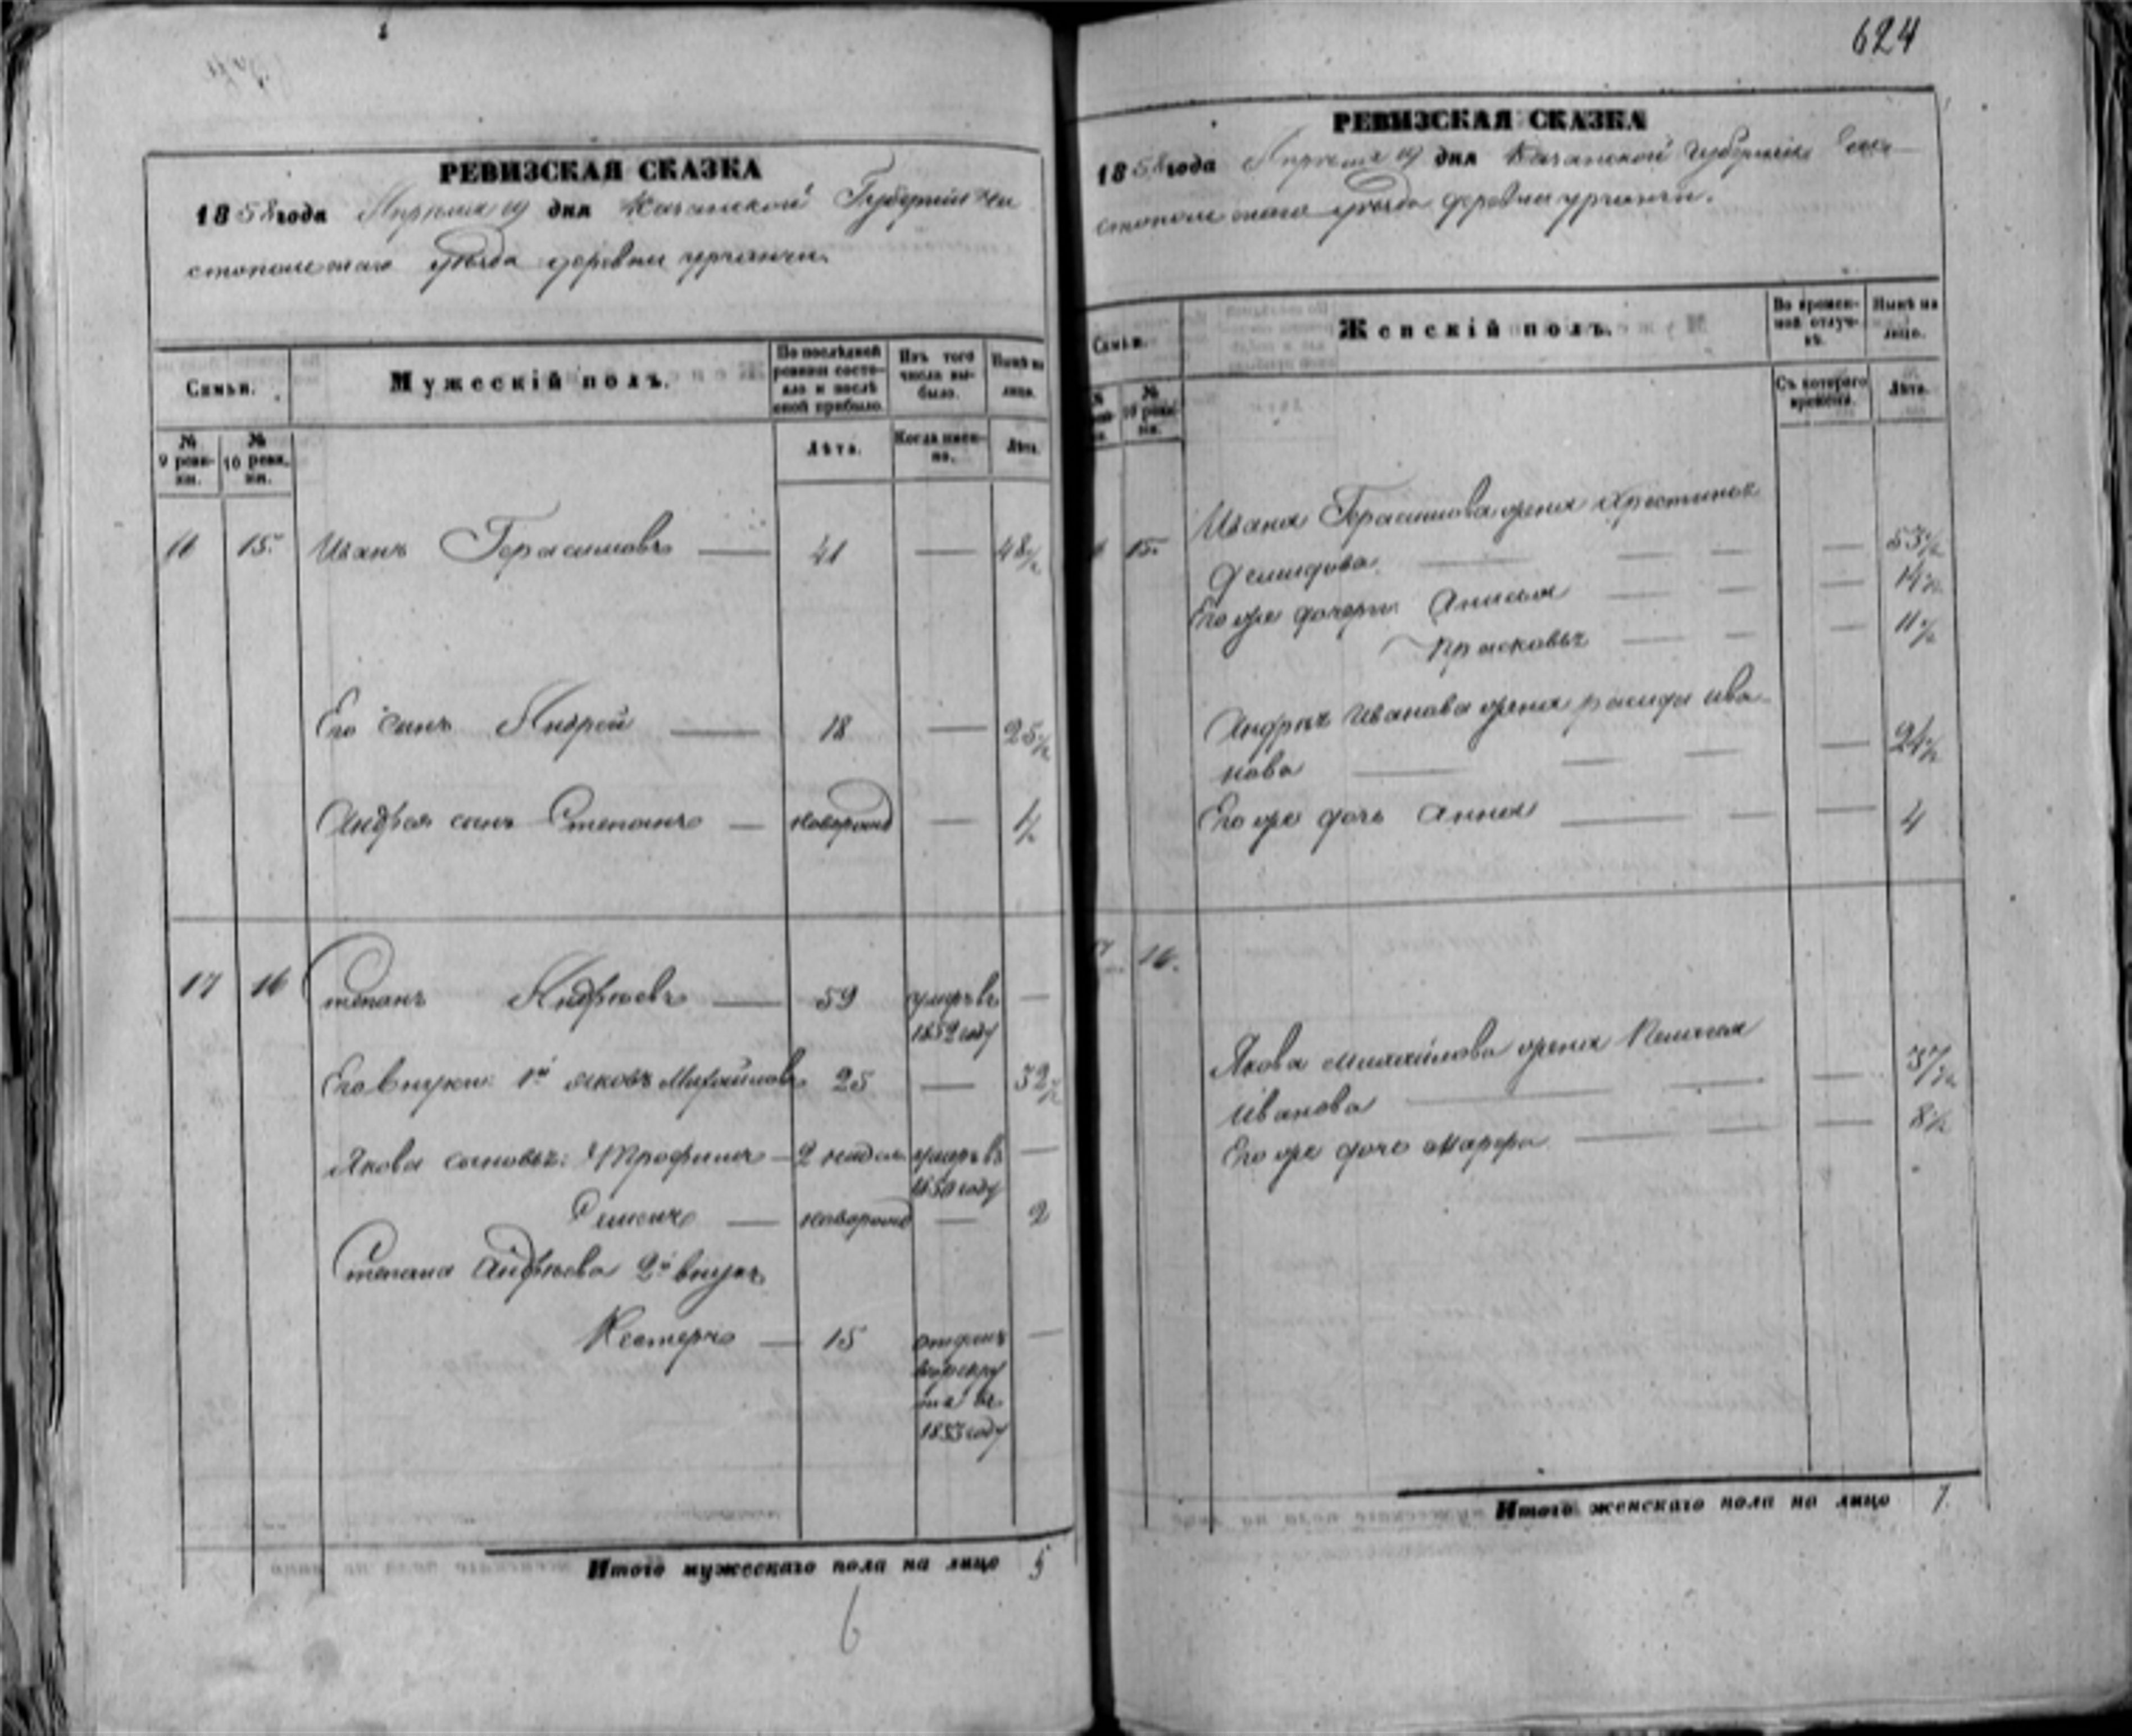 624
РЕВИЗСКАЯ СКАЗКА
1858 года Апреля 19 дня Казанской Губернiи Чи
стопольскаго уѣзда деревни
Семьи.
Мужескiй полъ.
По послѣдней ревизiи состояло и послѣ оной прибыло.
Изъ того числа выбыло.
Нынѣ на лицо.
№ 9 ревизiи.
№ 10 ревизiи.
Лѣта.
Когда именно.
Лѣта.
11 15. Иванъ Герасимовъ — 41 — 48½
Его сынъ Андрей — 18 — 25½
Андрея сынъ Степанъ — новорожд — ½
17 16 Степанъ Андрѣевъ — 59 умеръ въ —
1852 году
Его внуки: 1й Яковъ Михайловъ 25 — 32½
Якова сыновья: Трофимъ — 2 недел. умеръ въ —
1850 году
— новорожд — 2
Степана Андрѣева 2й внукъ
Нестеръ — 15 отданъ —
въ рекру
та въ
1853 году
Итого мужескаго пола на лицо 5
6
РЕВИЗСКАЯ СКАЗКА
1858 года Апреля 19 дня Казанской Губернiи Чи
стопольскаго уѣзда деревни
Семьи.
Женскiй полъ.
Во временной отлучкѣ.
Нынѣ на лицо.
№ 10 ревизiи.
Съ котораго времени.
Лѣта.
15. Ивана Герасимова жена Христинья
Демидова — — — — 53½
Его же дочери: Анисья — — — 14½
Прасковья — — — 11½
Андрея Иванова жена Ива
нова — — — — 24½
Его же дочь Анна — — — 4
16.
Якова Михайлова жена Пелагея
Иванова — — — 37½
Его же дочь Марфа — — — 8½
Итого женскаго пола на лицо 7.